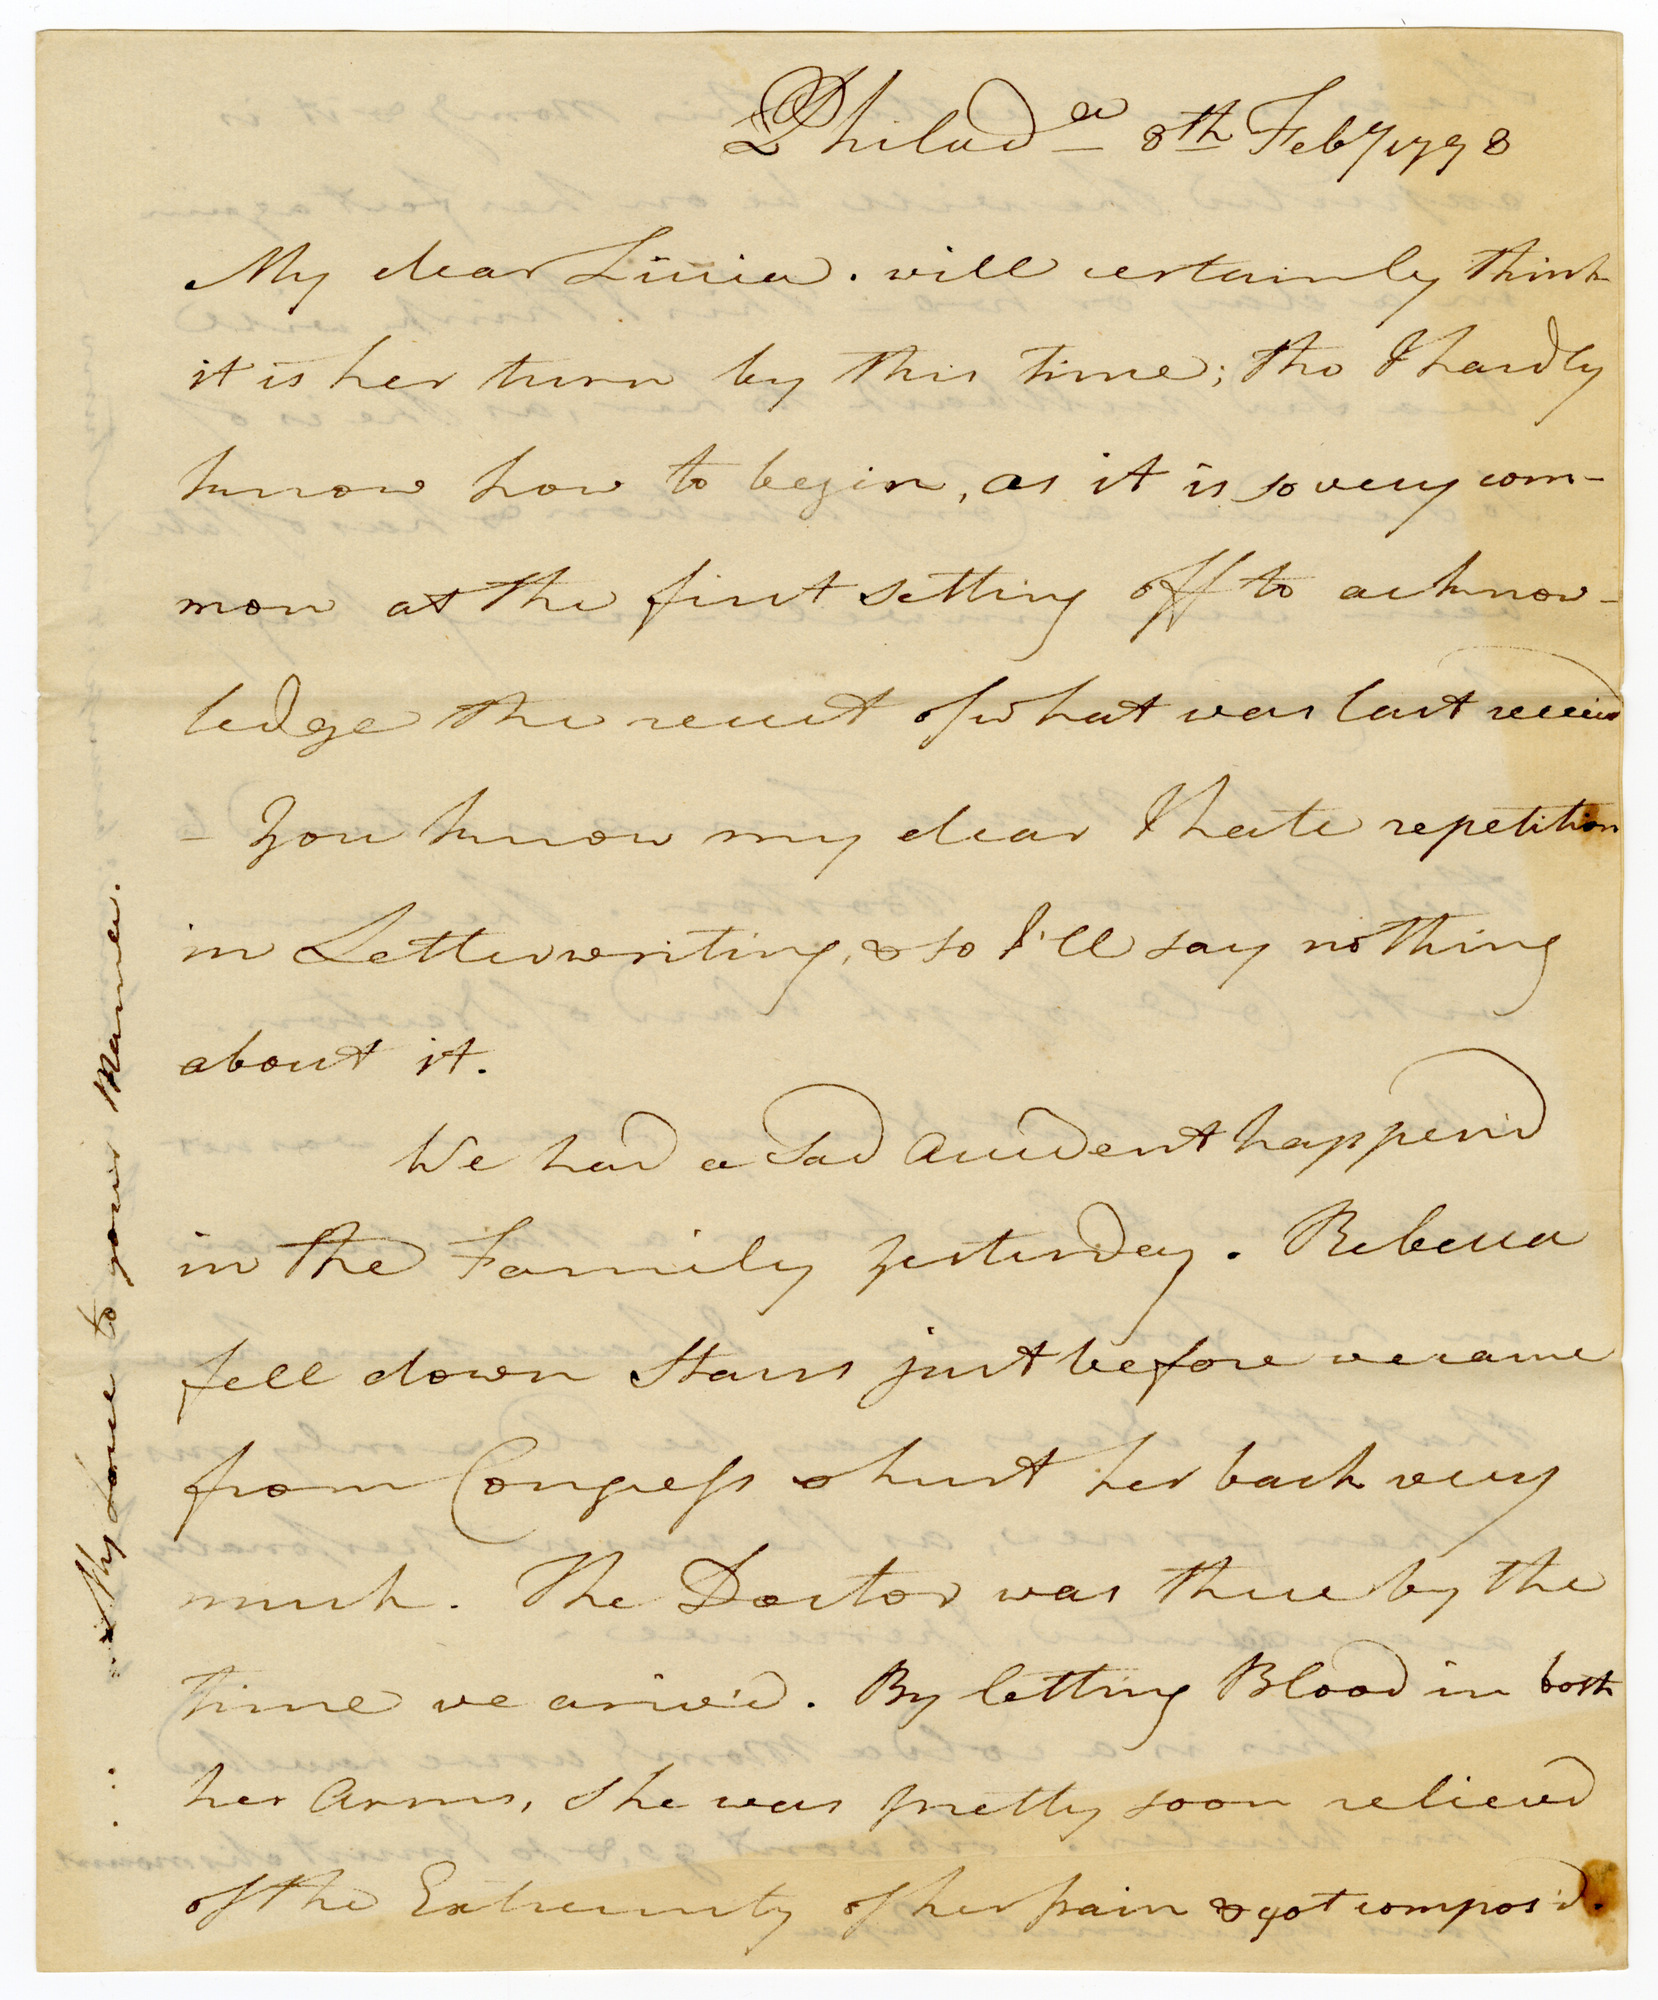 Philada 8th Feby 1798
My dear Livia. will certainly think
it is her turn by this time; tho I hardly
know how to begin, as it is so very com-
mon at the first setting off to acknow-
ledge the receit of what was last receivd
- You know my dear I hate repetition
in Letterwriting, & so I'll say nothing
about it.
We had a Sad Accident happen'd
in the Family yesterday. Rebecca
fell down Stairs just before we came
from Congress & hurt her back very
much. The Doctor was there by the
time we arriv'd. By letting Blood in both
her Arms, She was pretty soon relieved
of the Extremity of her pain & got compos'd.
My Love to your Mamea.